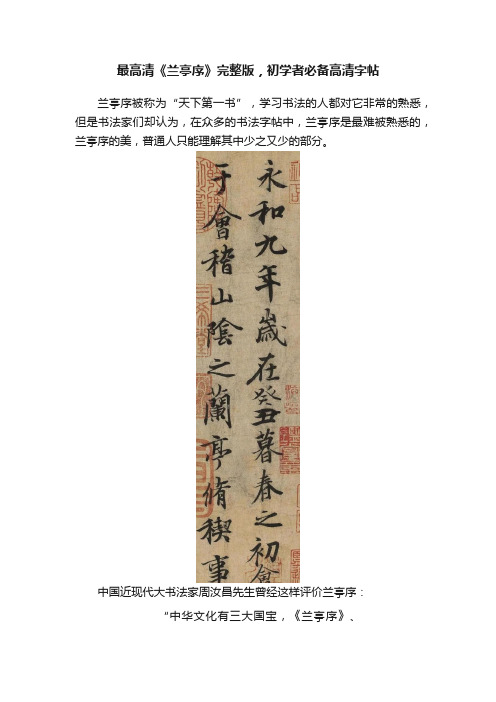 最高清《兰亭序》完整版，初学者必备高清字帖
兰亭序被称为“天下第一书”，学习书法的人都对它非常的熟悉，
但是书法家们却认为，在众多的书法字帖中，兰亭序是最难被熟悉的，
兰亭序的美，普通人只能理解其中少之又少的部分。
永和九年歲在癸丑暮春之初會
于會稽山陰之蘭亭脩稧事
中国近现代大书法家周汝昌先生曾经这样评价兰亭序：
“中华文化有三大国宝，《兰亭序》、